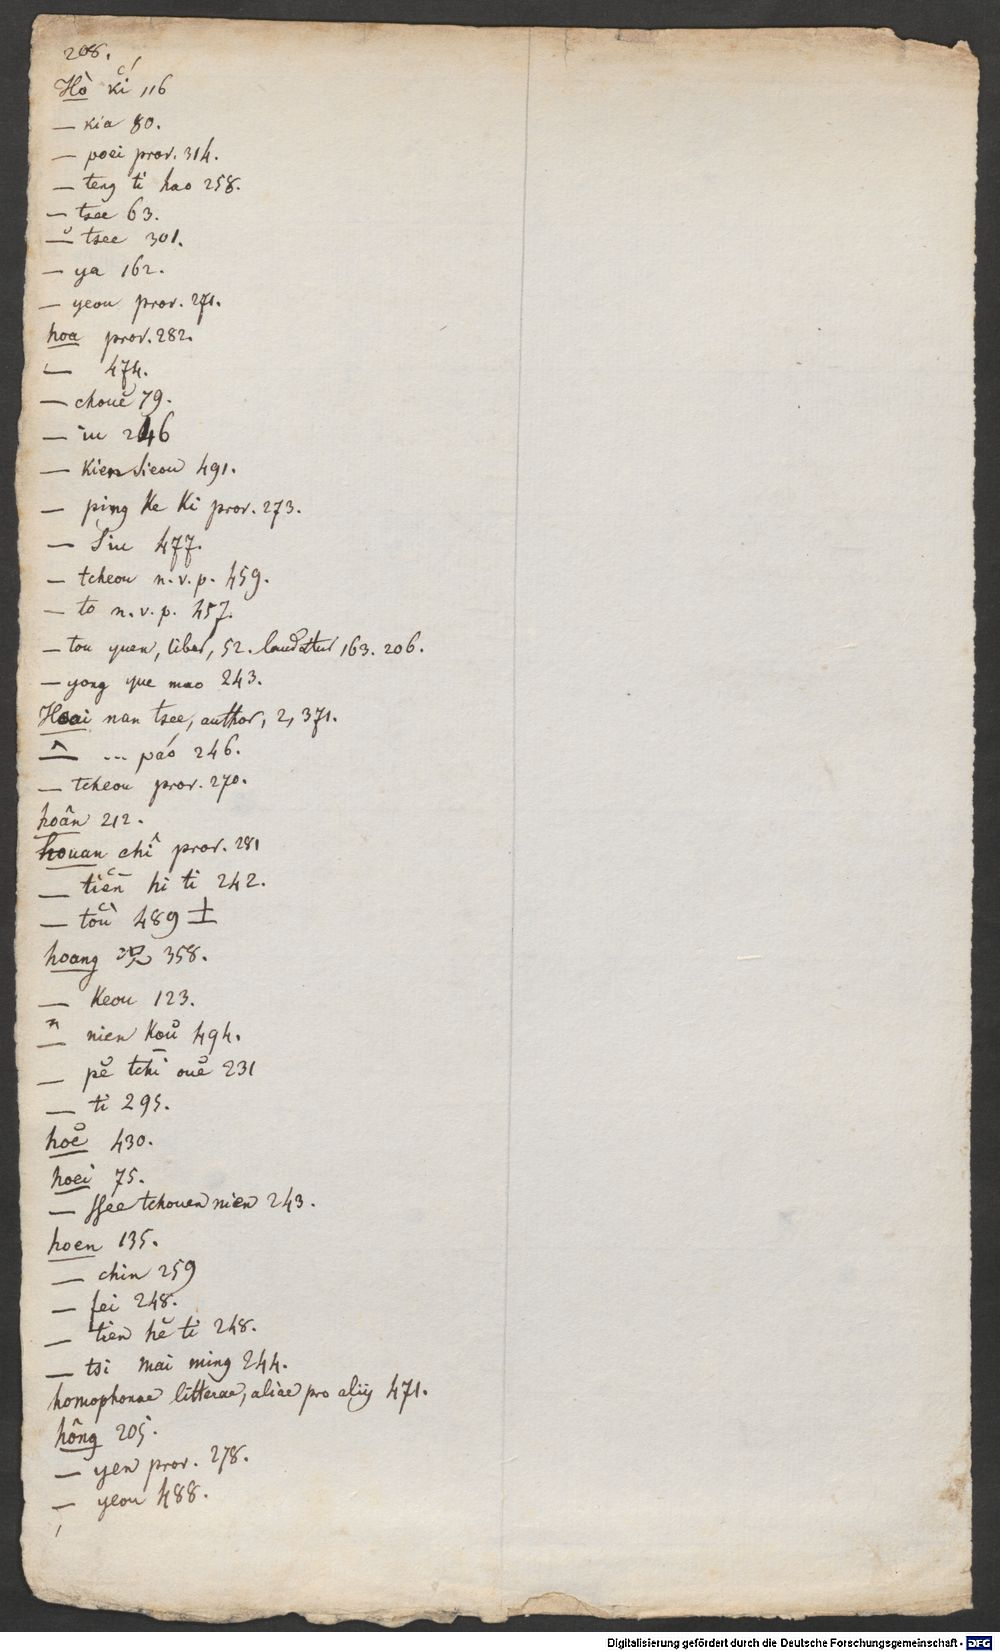 208.
Hò kí 116
— kia 80.
— poei prov. 314.
— teng ti hao 258.
— tsee 63.
— tsee 301.
— ya 162.
— yeou prov. 271.
hoa prov. 282.
— 474.
— chouĕ 79.
— iu 246
— kien sieou 491.
— ping ke ki prov. 273.
— Siu 477.
— tcheou n.v.p. 459.
— to n.v.p. 457.
— tou yuen, liber, 52. laudatur 163. 206.
— yong yue mao 243.
Hoai nan tsee, author, 2, 371.
— ... páo 246.
— tcheou prov. 270.
hoân 212.
houan chî prov. 281
— tiēn hi ti 242.
— toù 489 土
hoang 況 358.
— Keou 123.
— nien Koŭ 494.
— pĕ tchī ouĕ 231
— ti 295.
hoĕ 430.
hoei 75.
— ssee tchouen nien 243.
hoen 135.
— chin 259
— fei 248.
— tien hĕ ti 248.
— tsi mai ming 244.
homophonae litterae, aliae pro aliis 471.
hông 205.
— yen prov. 278.
— yeou 488.
Digitalisierung gefördert durch die Deutsche Forschungsgemeinschaft - DFG